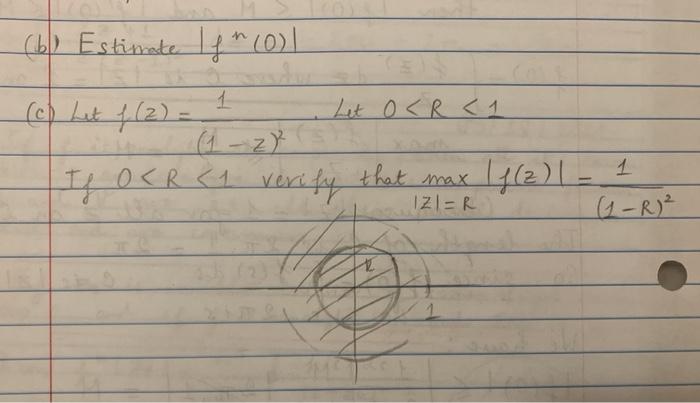 (b) Estimate |fⁿ(0)|
(c) Let f(z) = 1/(1 - z)² . Let 0 < R < 1
If 0 < R < 1 verify that max |f(z)| = 1/(1-R)²
|z| = R
R
1